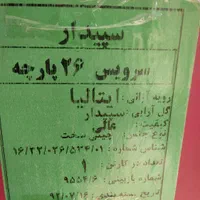 سپیدار
سرویس ۲۶ پارچه
رویه آرائی: ایتالیا
گل آرایی: سپیدار
کیفیت: عالی
نوع جنس: چینی سخت
شناس شماره: ۱۶/۲۲/۰۲۶/۵۳۴/۰۱
تعداد در کارتن: ۱
شماره بازبینی: ۹۵۵۴/۶
تاریخ بسته بندی: ۹۲/۰۷/۱۶